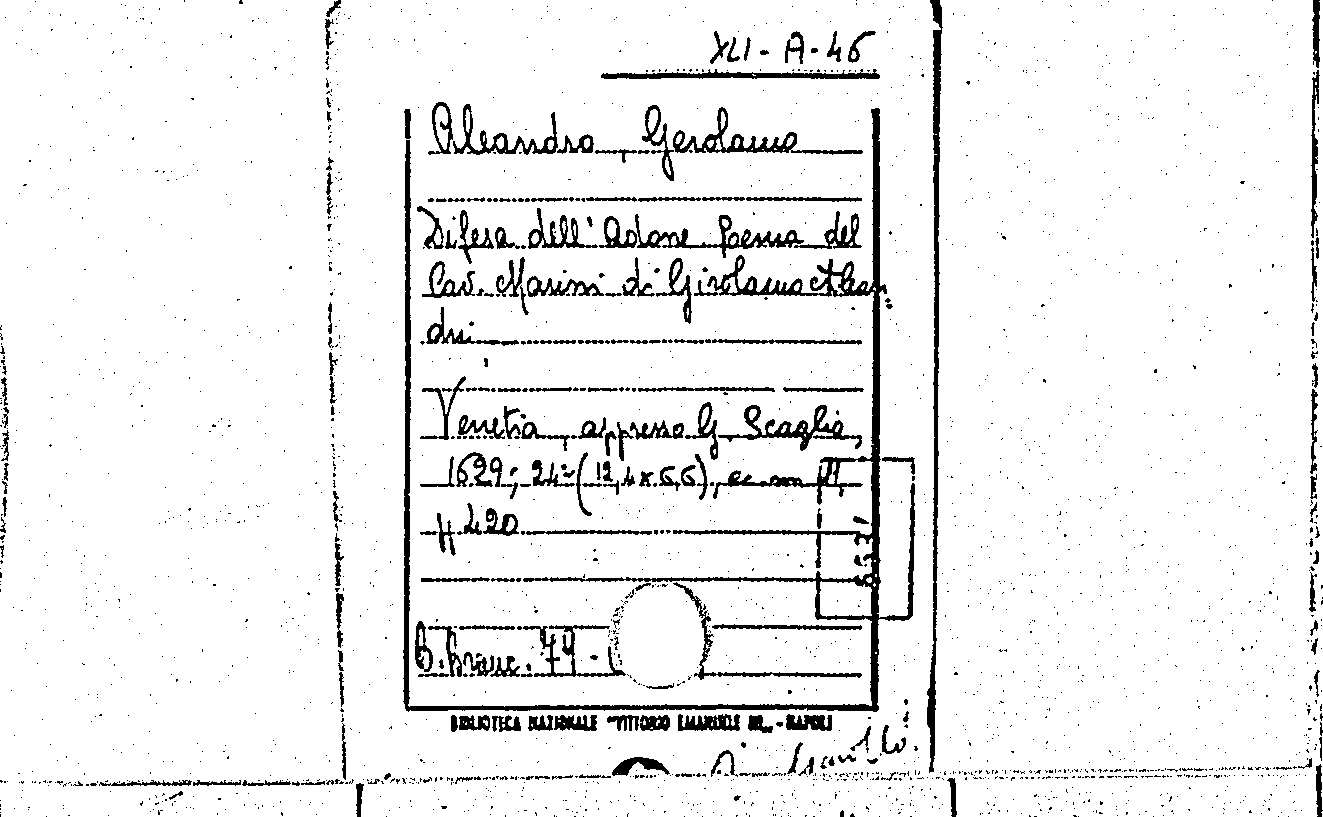 XLI - A - 46
Aleandro, Gerolamo
Difesa dell'Adone. Poema del
Cav. Marini di Girolamo Alean-
dri
Venetia, appresso G. Scaglia,
1629; 24° (12,4 x 6,6),
420
B. Branc. 79 -
BIBLIOTECA NAZIONALE "VITTORIO EMANUELE III„ - NAPOLI